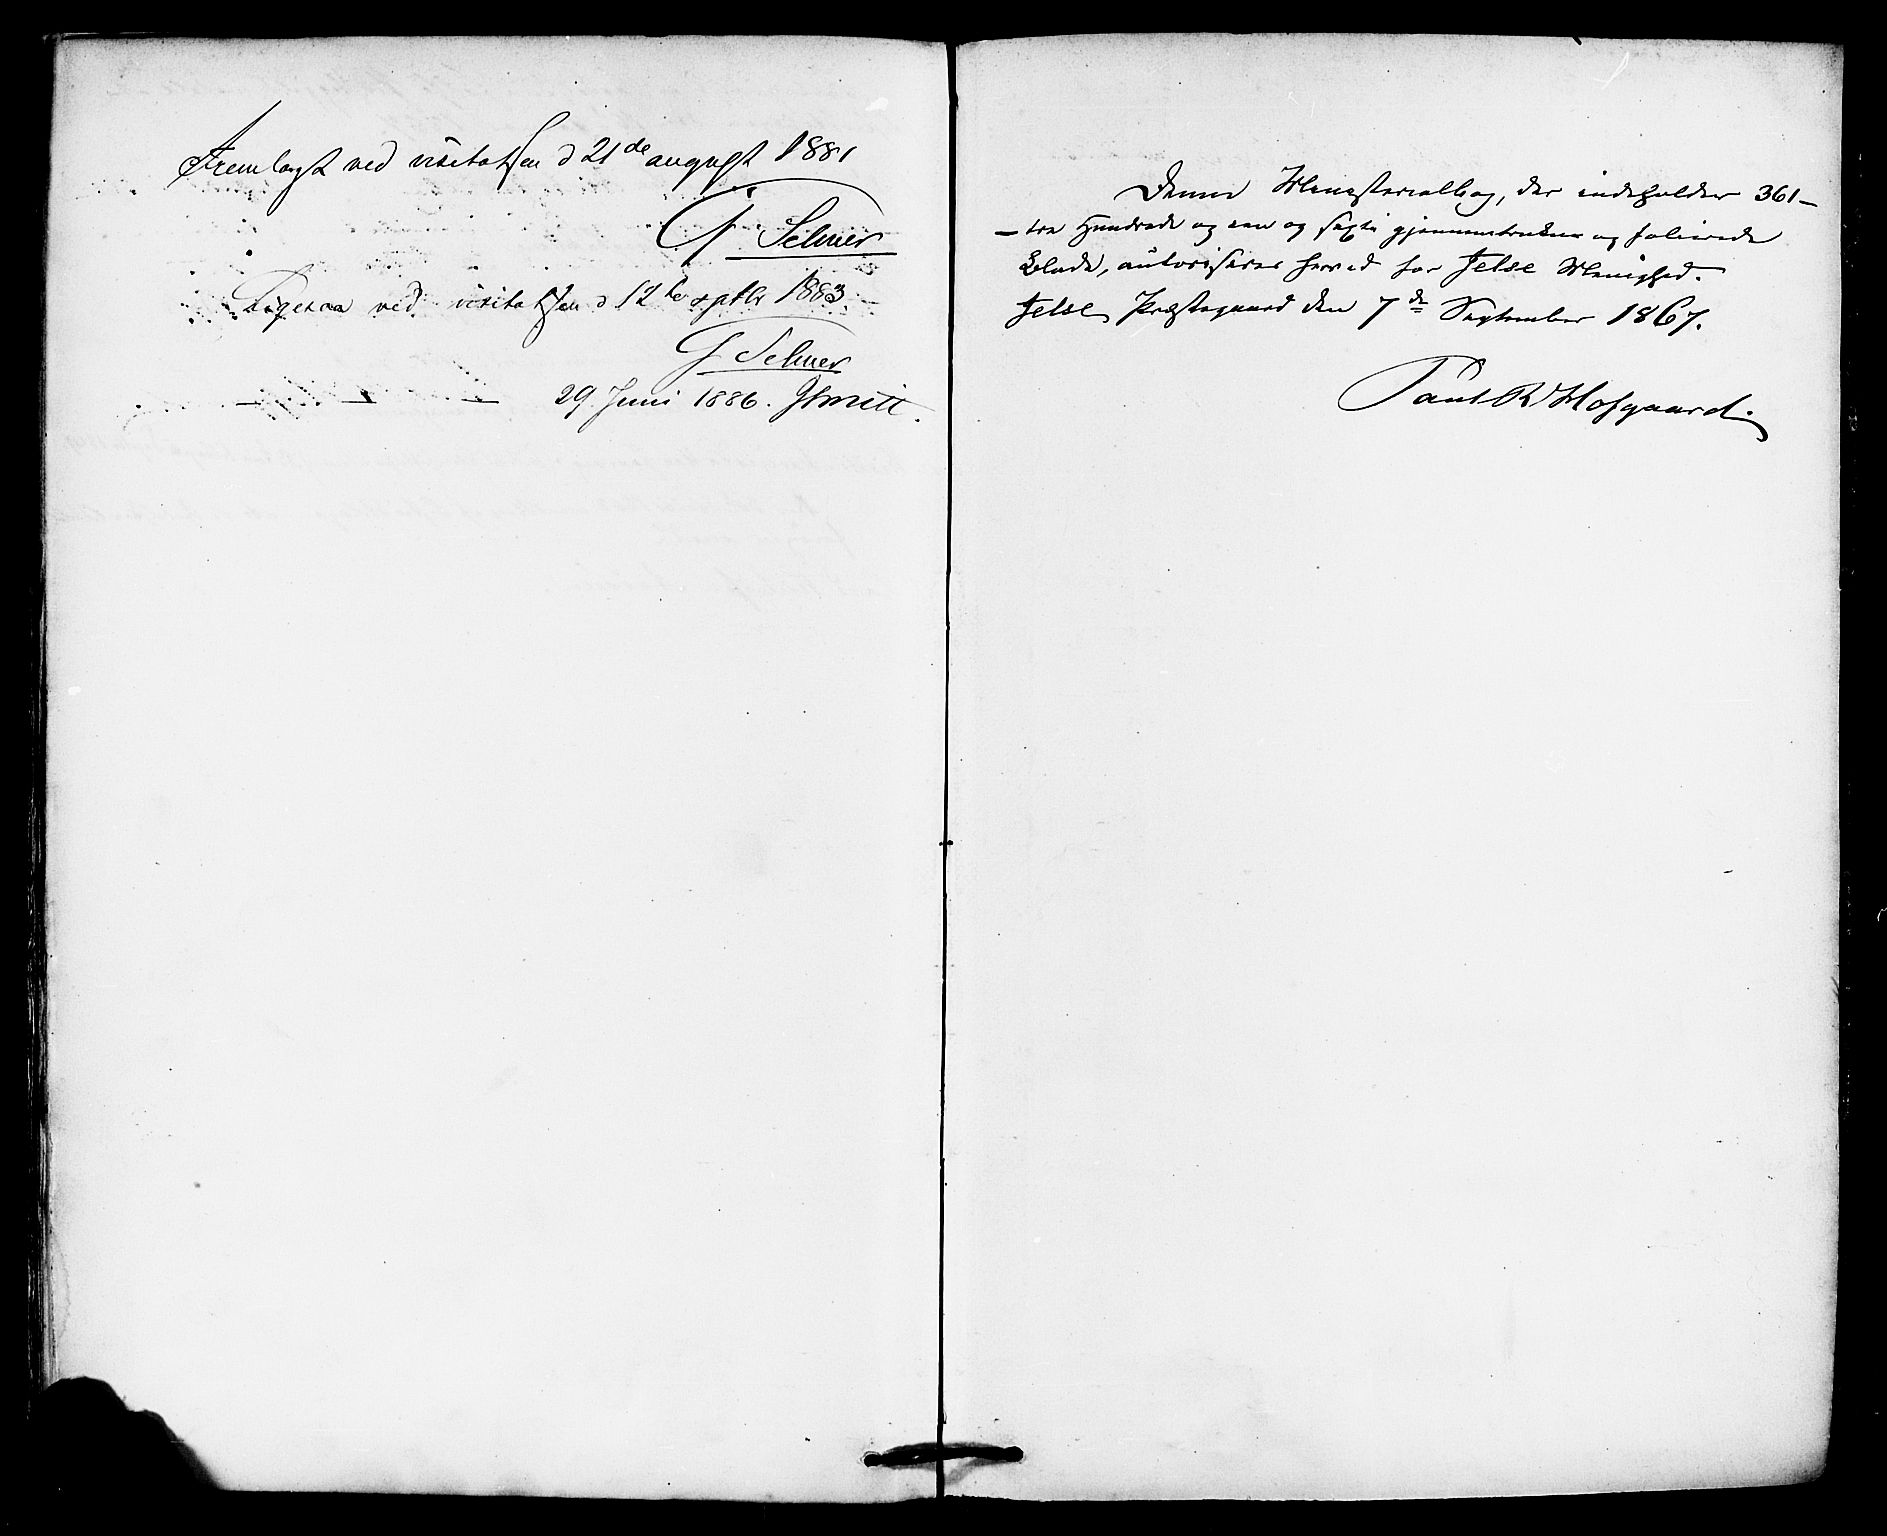 Fremlagt ved visitatsen d 21de august 1881
Selmer
Ligesaa ved visitatsen d 12te septbr 1883.
Selmer
— — — 29. Juni 1886.
Denne Ministerialbog, der indeholder 361 –
– tre Hundrede og een og sexti gjennemtrukne og folierede
Blade, autoriseres herved for Jelse Menighed.
Jelse Præstegaard den 7de September 1867.
Hofgaard